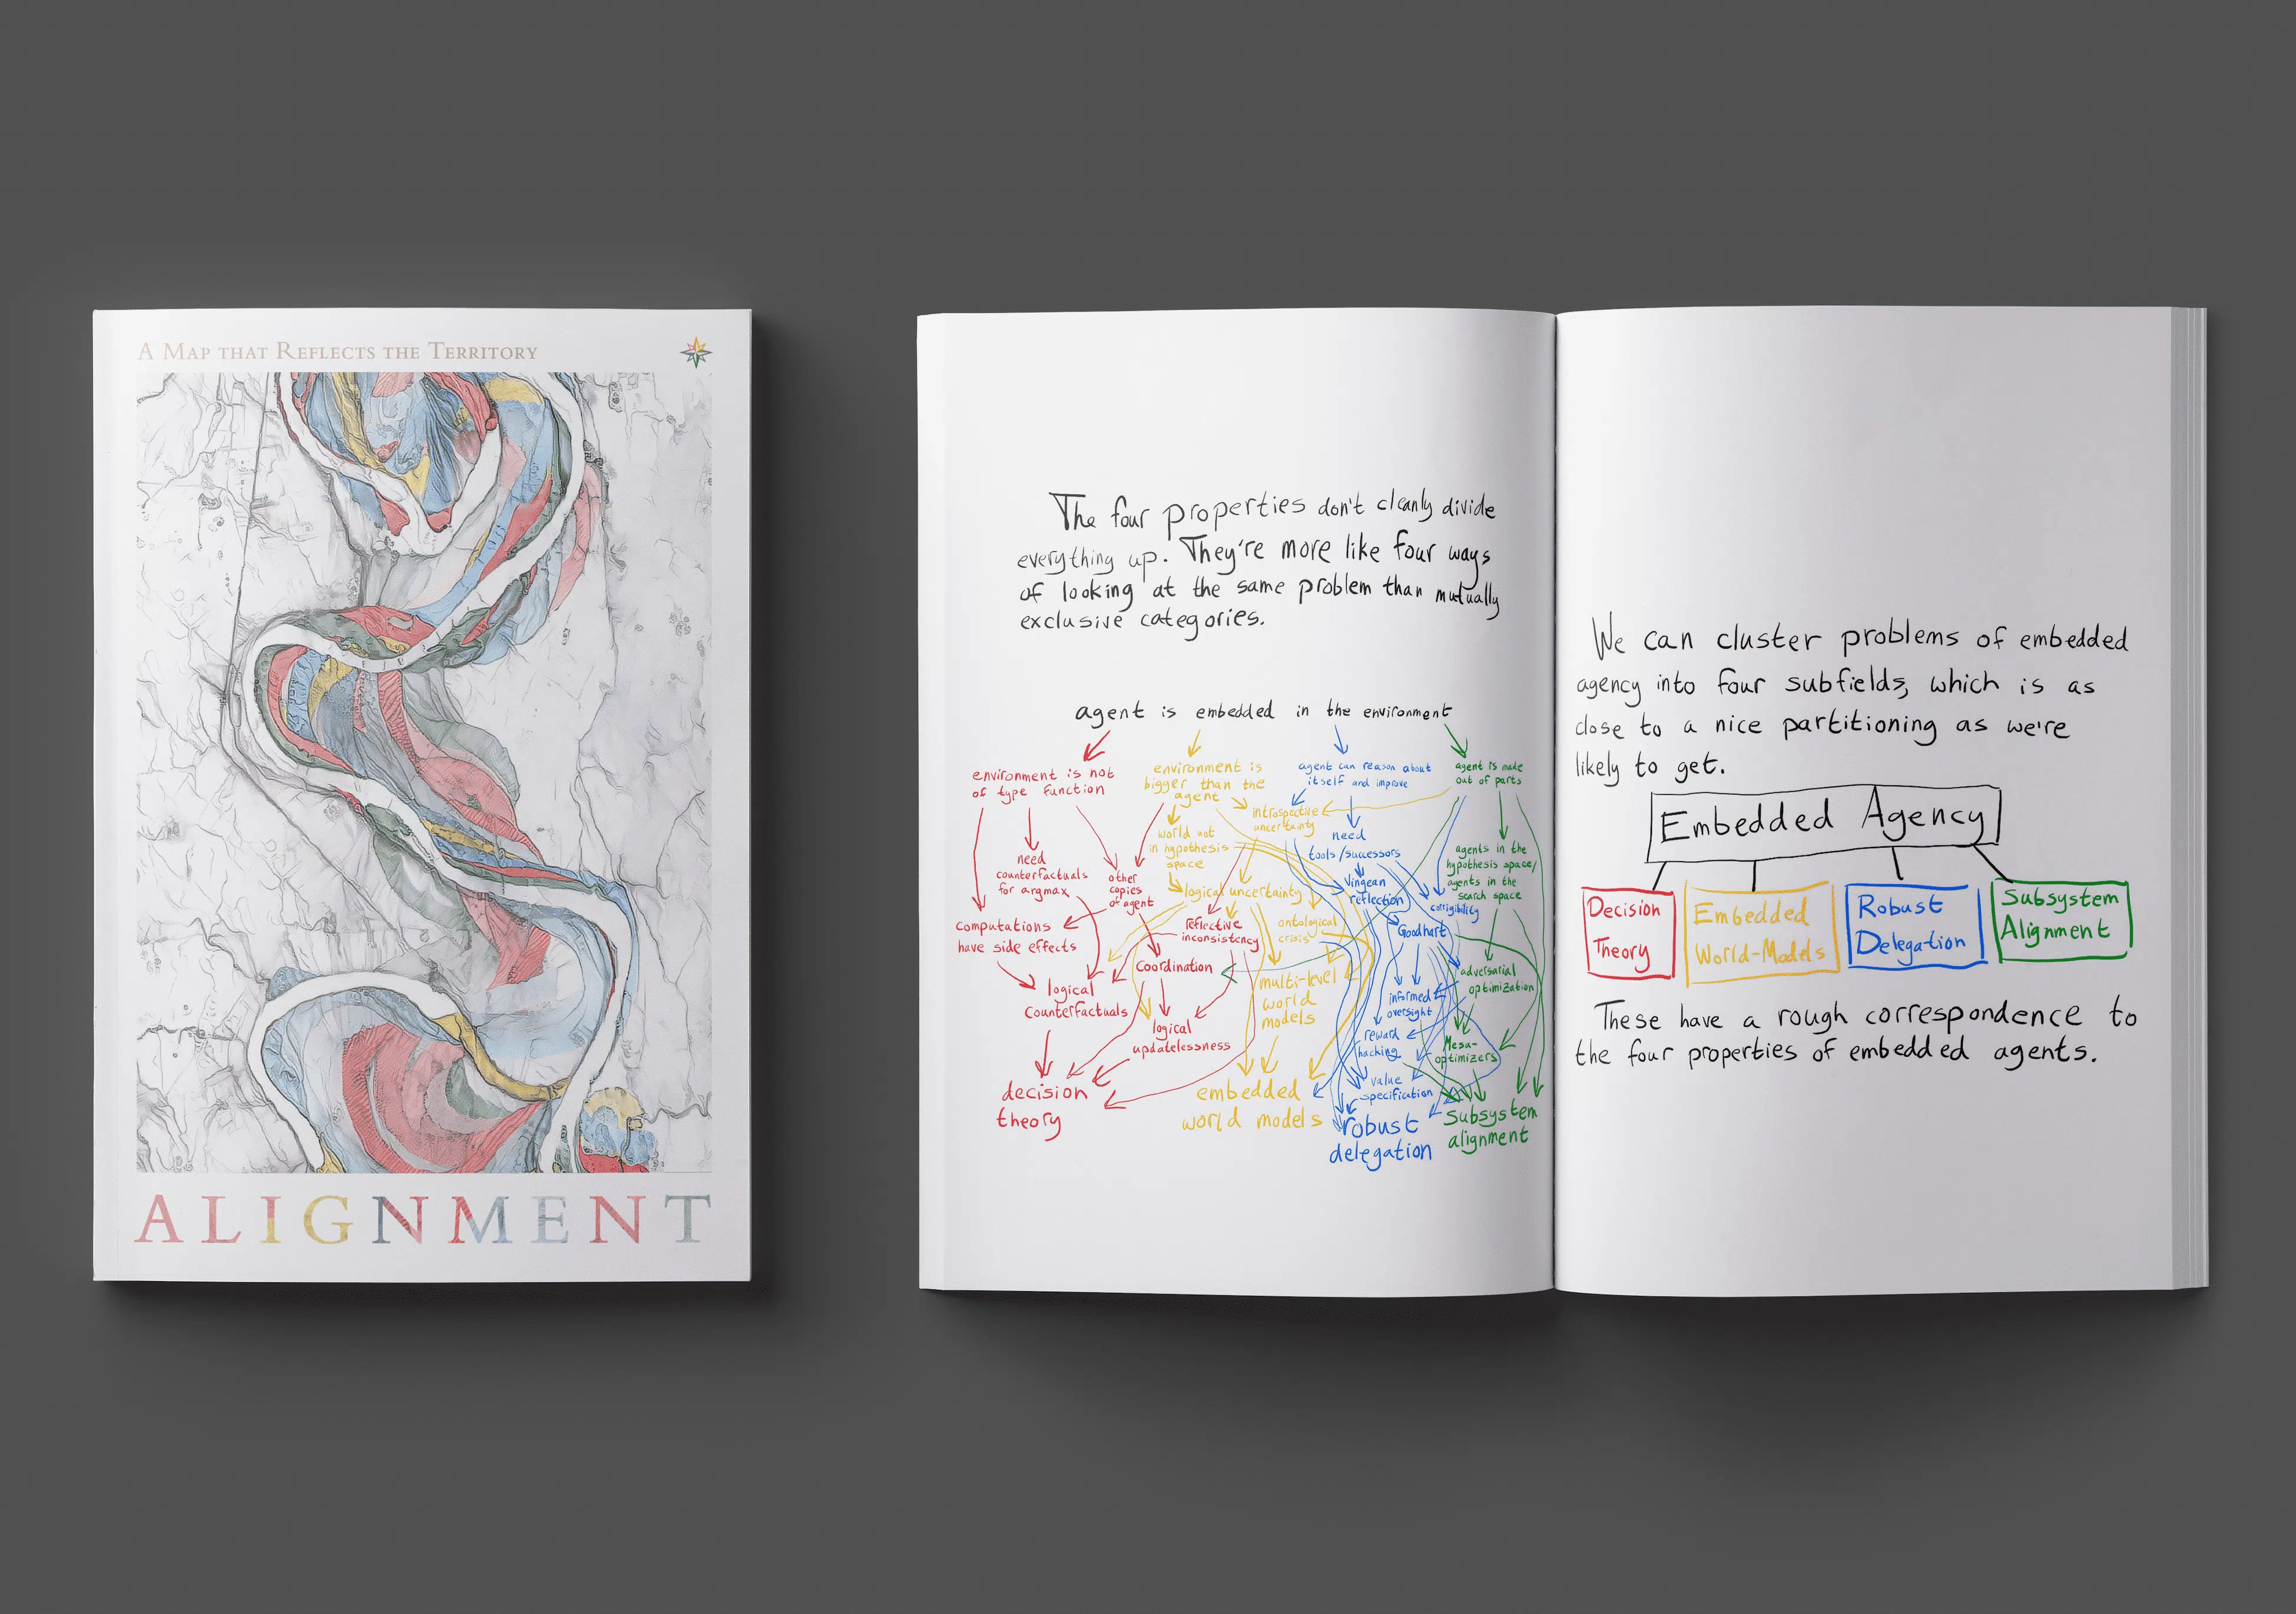 A MAP THAT REFLECTS THE TERRITORY
ALIGNMENT
The four properties don't cleanly divide
everything up. They're more like four ways
of looking at the same problem than mutually
exclusive categories.
agent is embedded in the environment
environment is not
of type function
environment is
bigger than the
agent
agent can reason about
itself and improve
agent is made
out of parts
introspective
uncertainty
world not
in hypothesis
space
need
tools/successors
need
counterfactuals
for argmax
other
copies
of agent
agents in the
hypothesis space/
agents in the
search space
logical uncertainty
Vingean
reflection
corrigibility
computations
have side effects
reflective
inconsistency
ontological
crisis
Goodhart
Coordination
multi-level
world
models
adversarial
optimization
logical
counterfactuals
informed
oversight
logical
updatelessness
reward
hacking
Mesa-
optimizers
value
specification
decision
theory
embedded
world models
robust
delegation
Subsystem
alignment
We can cluster problems of embedded
agency into four subfields, which is as
close to a nice partitioning as we're
likely to get.
Embedded Agency
Decision
Theory
Embedded
World-Models
Robust
Delegation
Subsystem
Alignment
These have a rough correspondence to
the four properties of embedded agents.